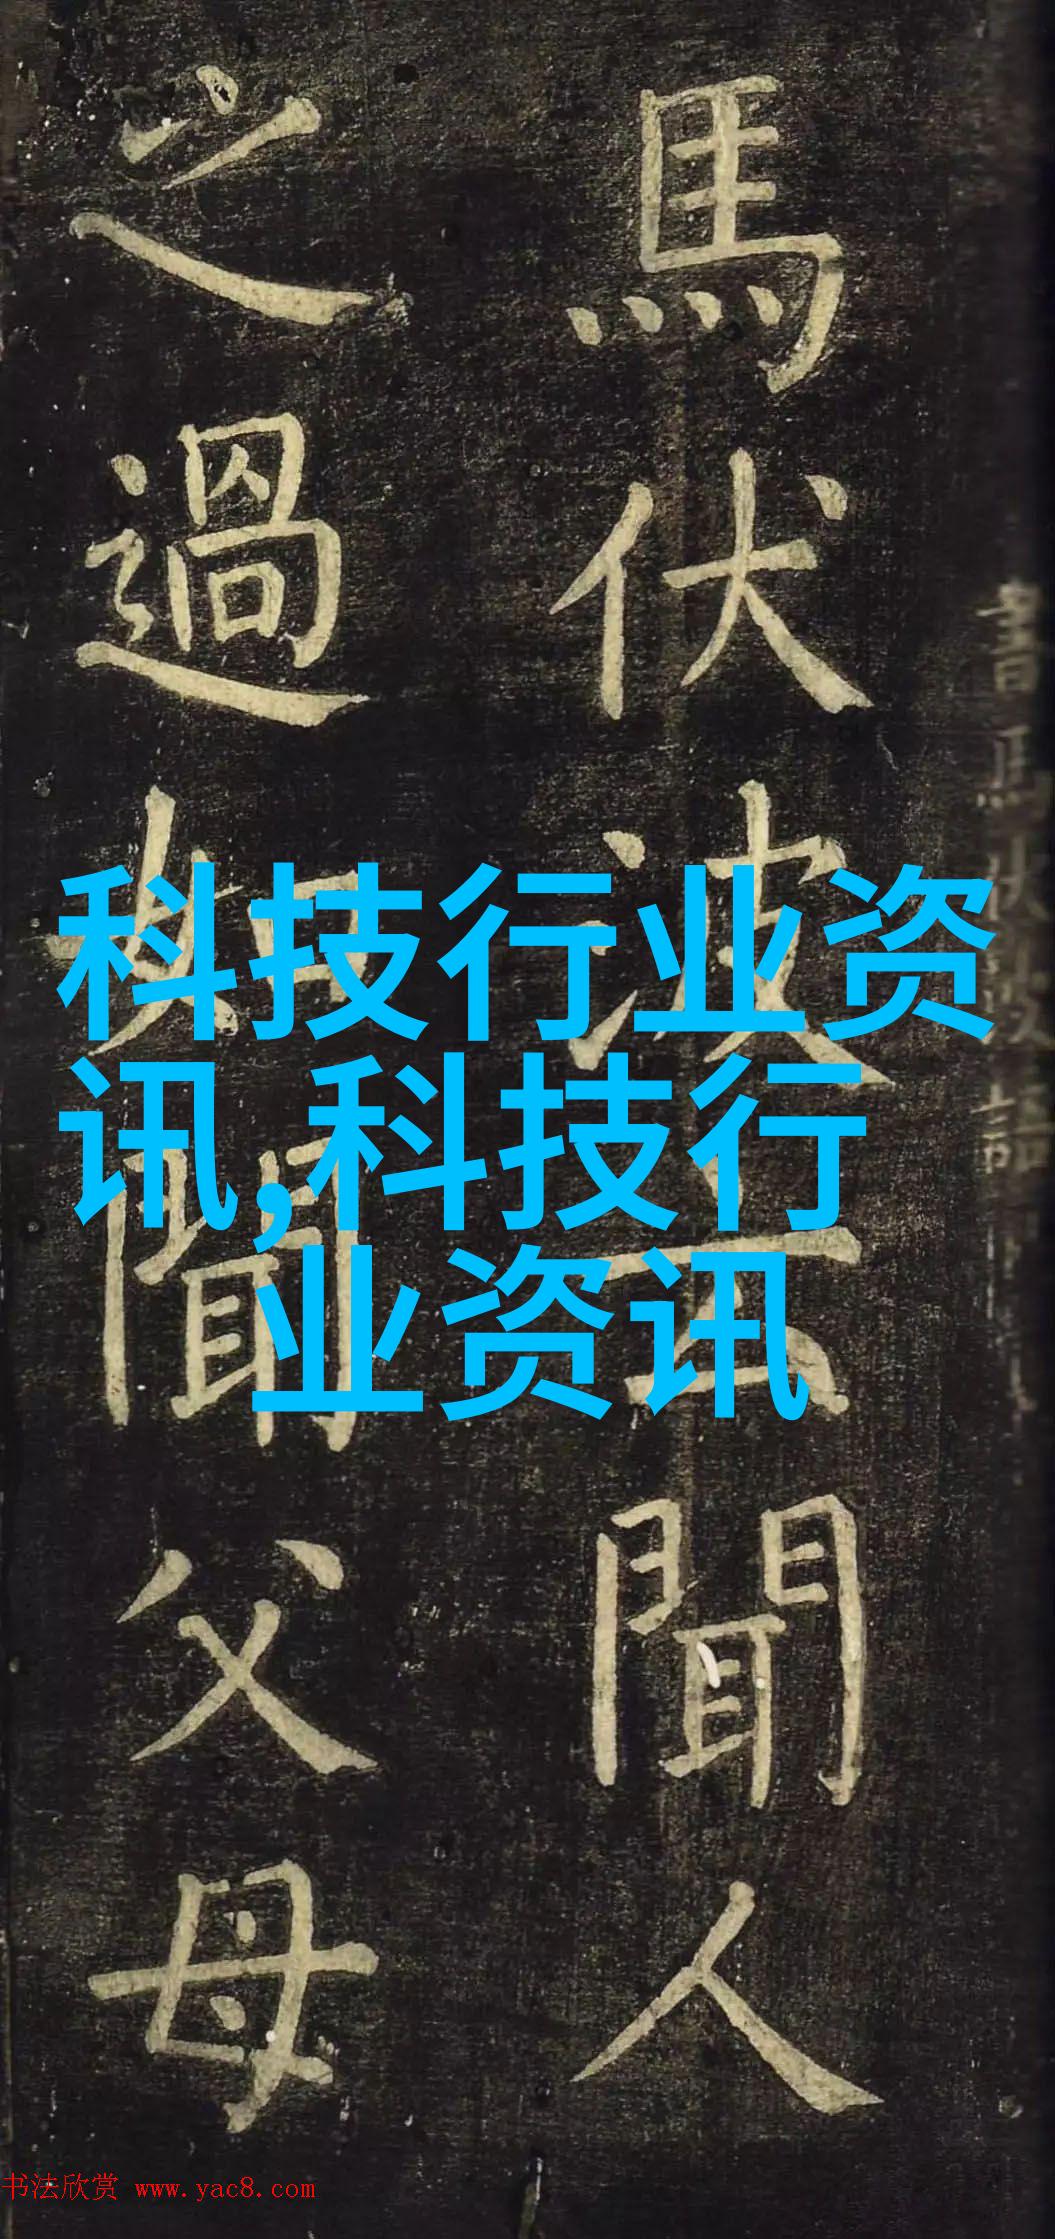 馬伏波云聞人
之過如聞父母
科技行业资
讯,科技行
业资讯
书法欣赏 www.yac8.com